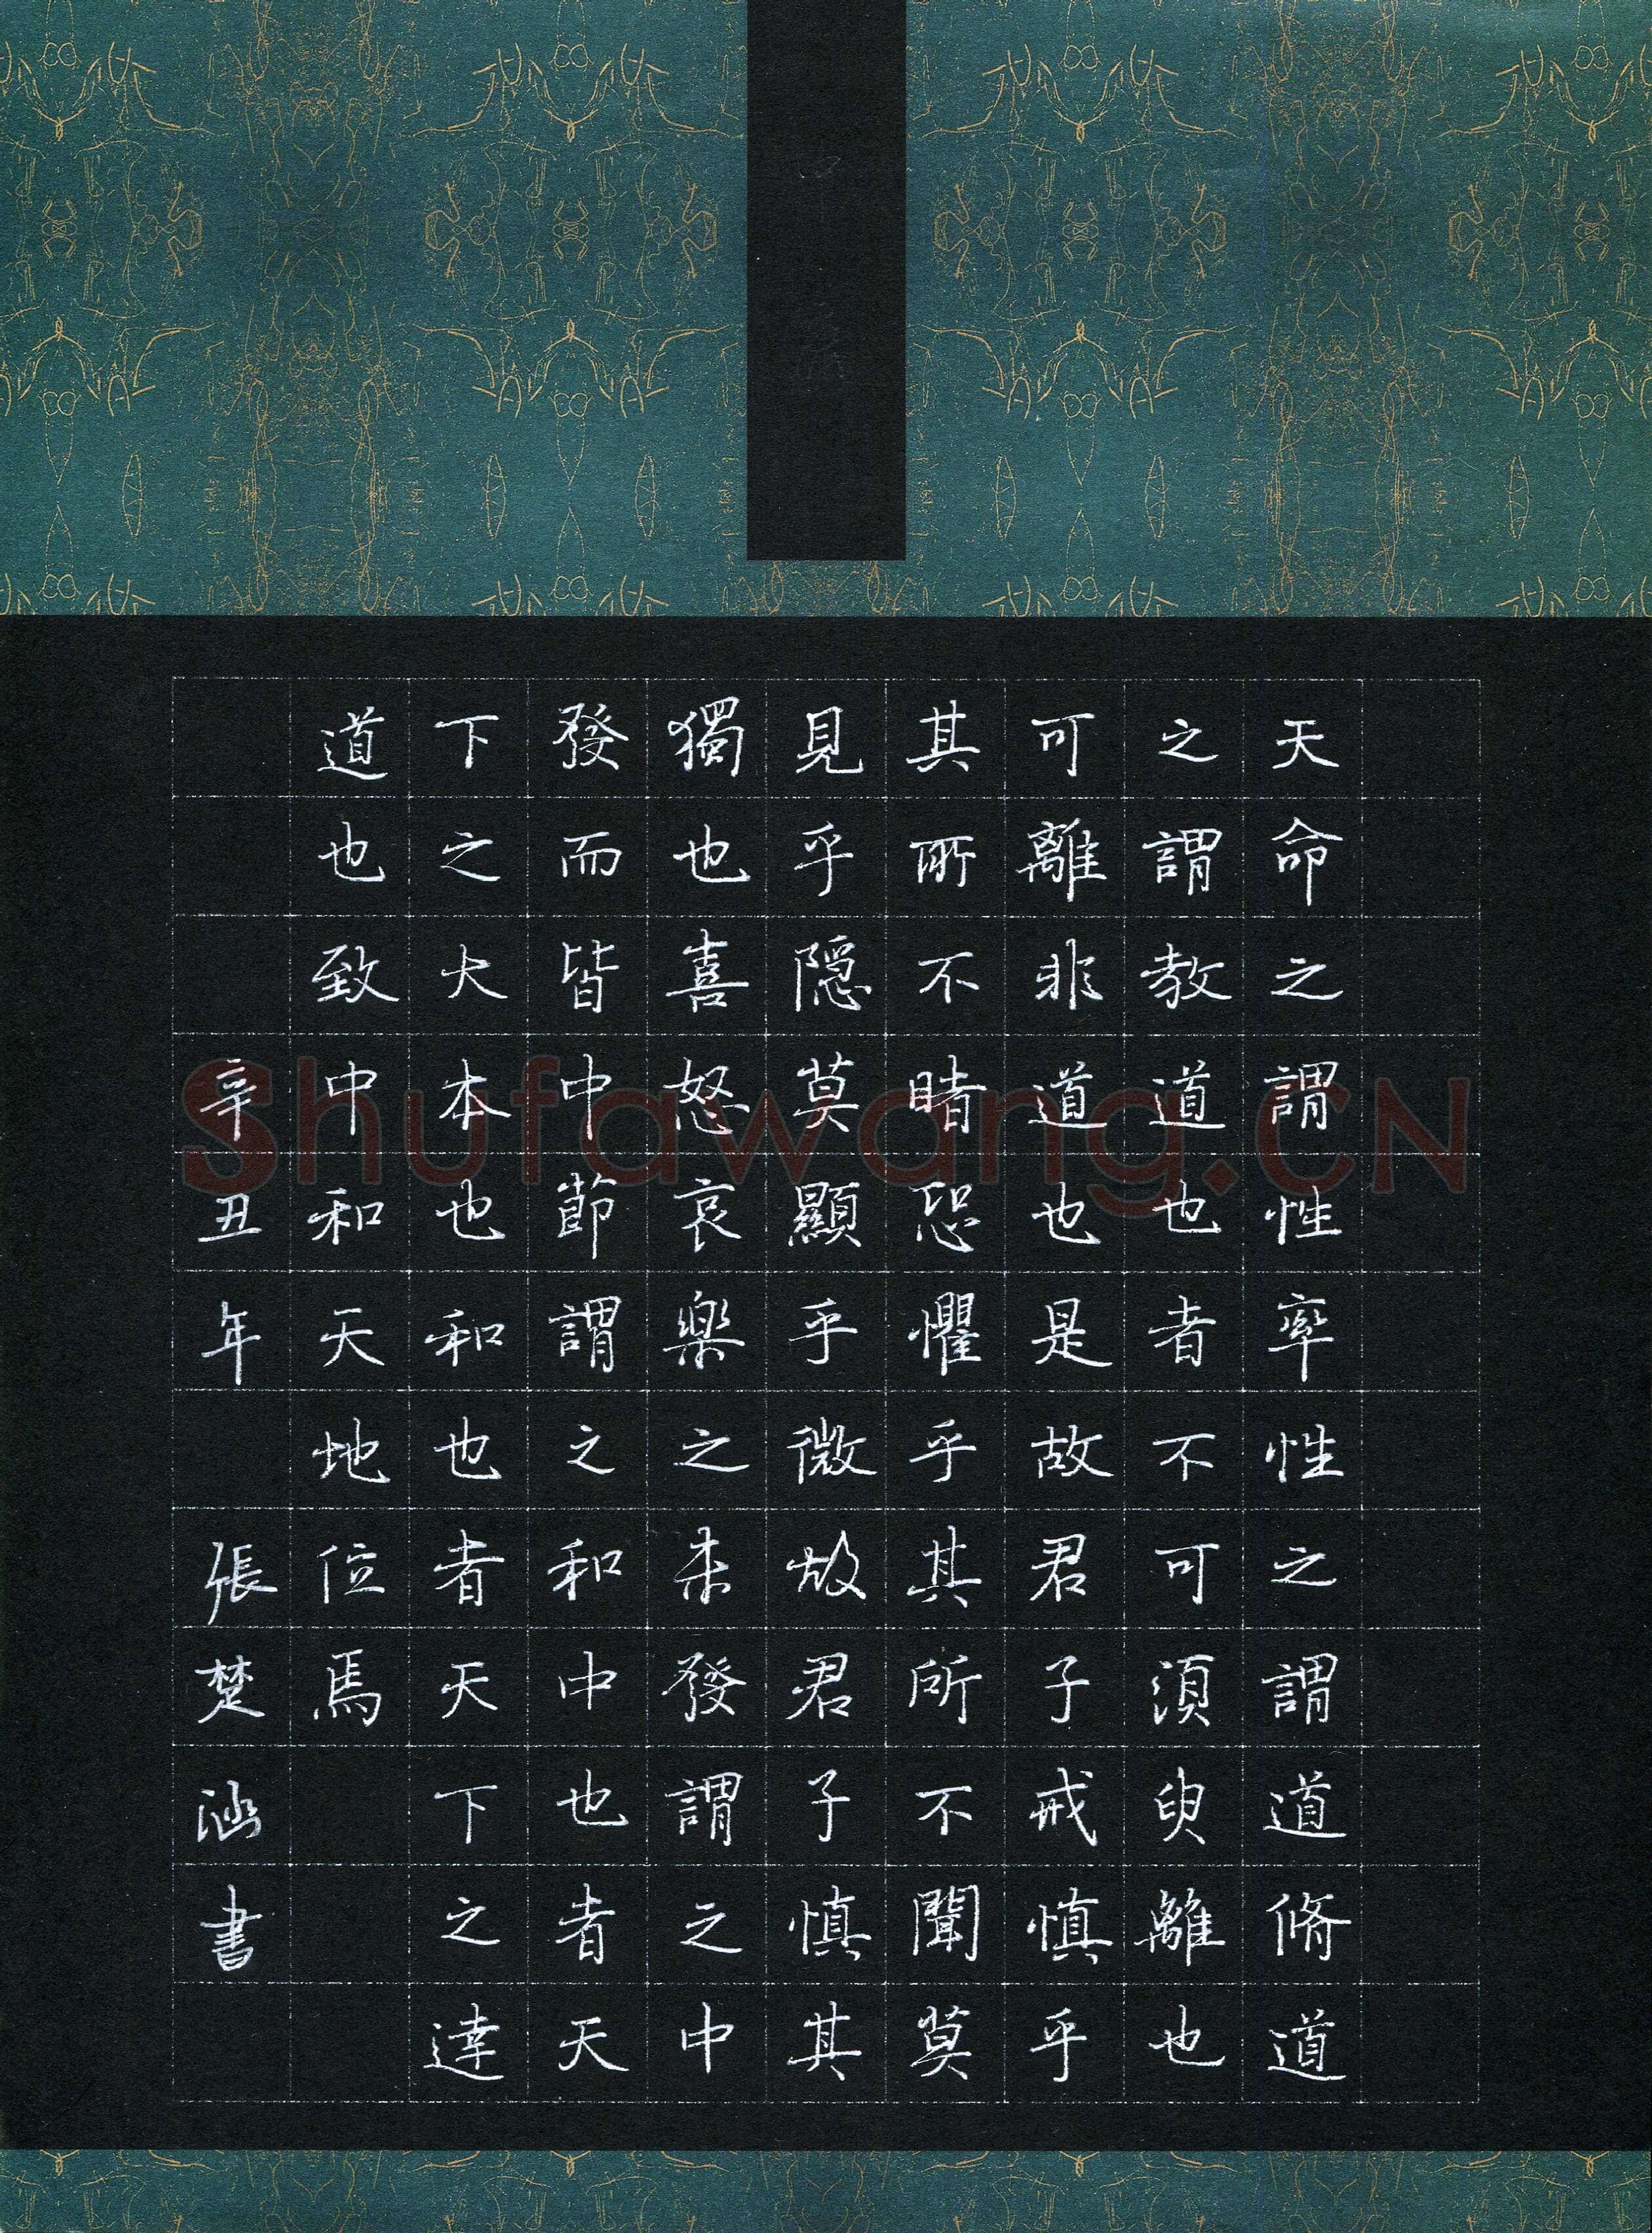 天命之謂性率性之謂道脩道
之謂教道也者不可須臾離也
可離非道也是故君子戒慎乎
其所不睹恐懼乎其所不聞莫
見乎隱莫顯乎微故君子慎其
獨也喜怒哀樂之未發謂之中
發而皆中節謂之和中也者天
下之大本也和也者天下之達
道也致中和天地位焉
辛丑年 張楚涵書
Shufawang.CN